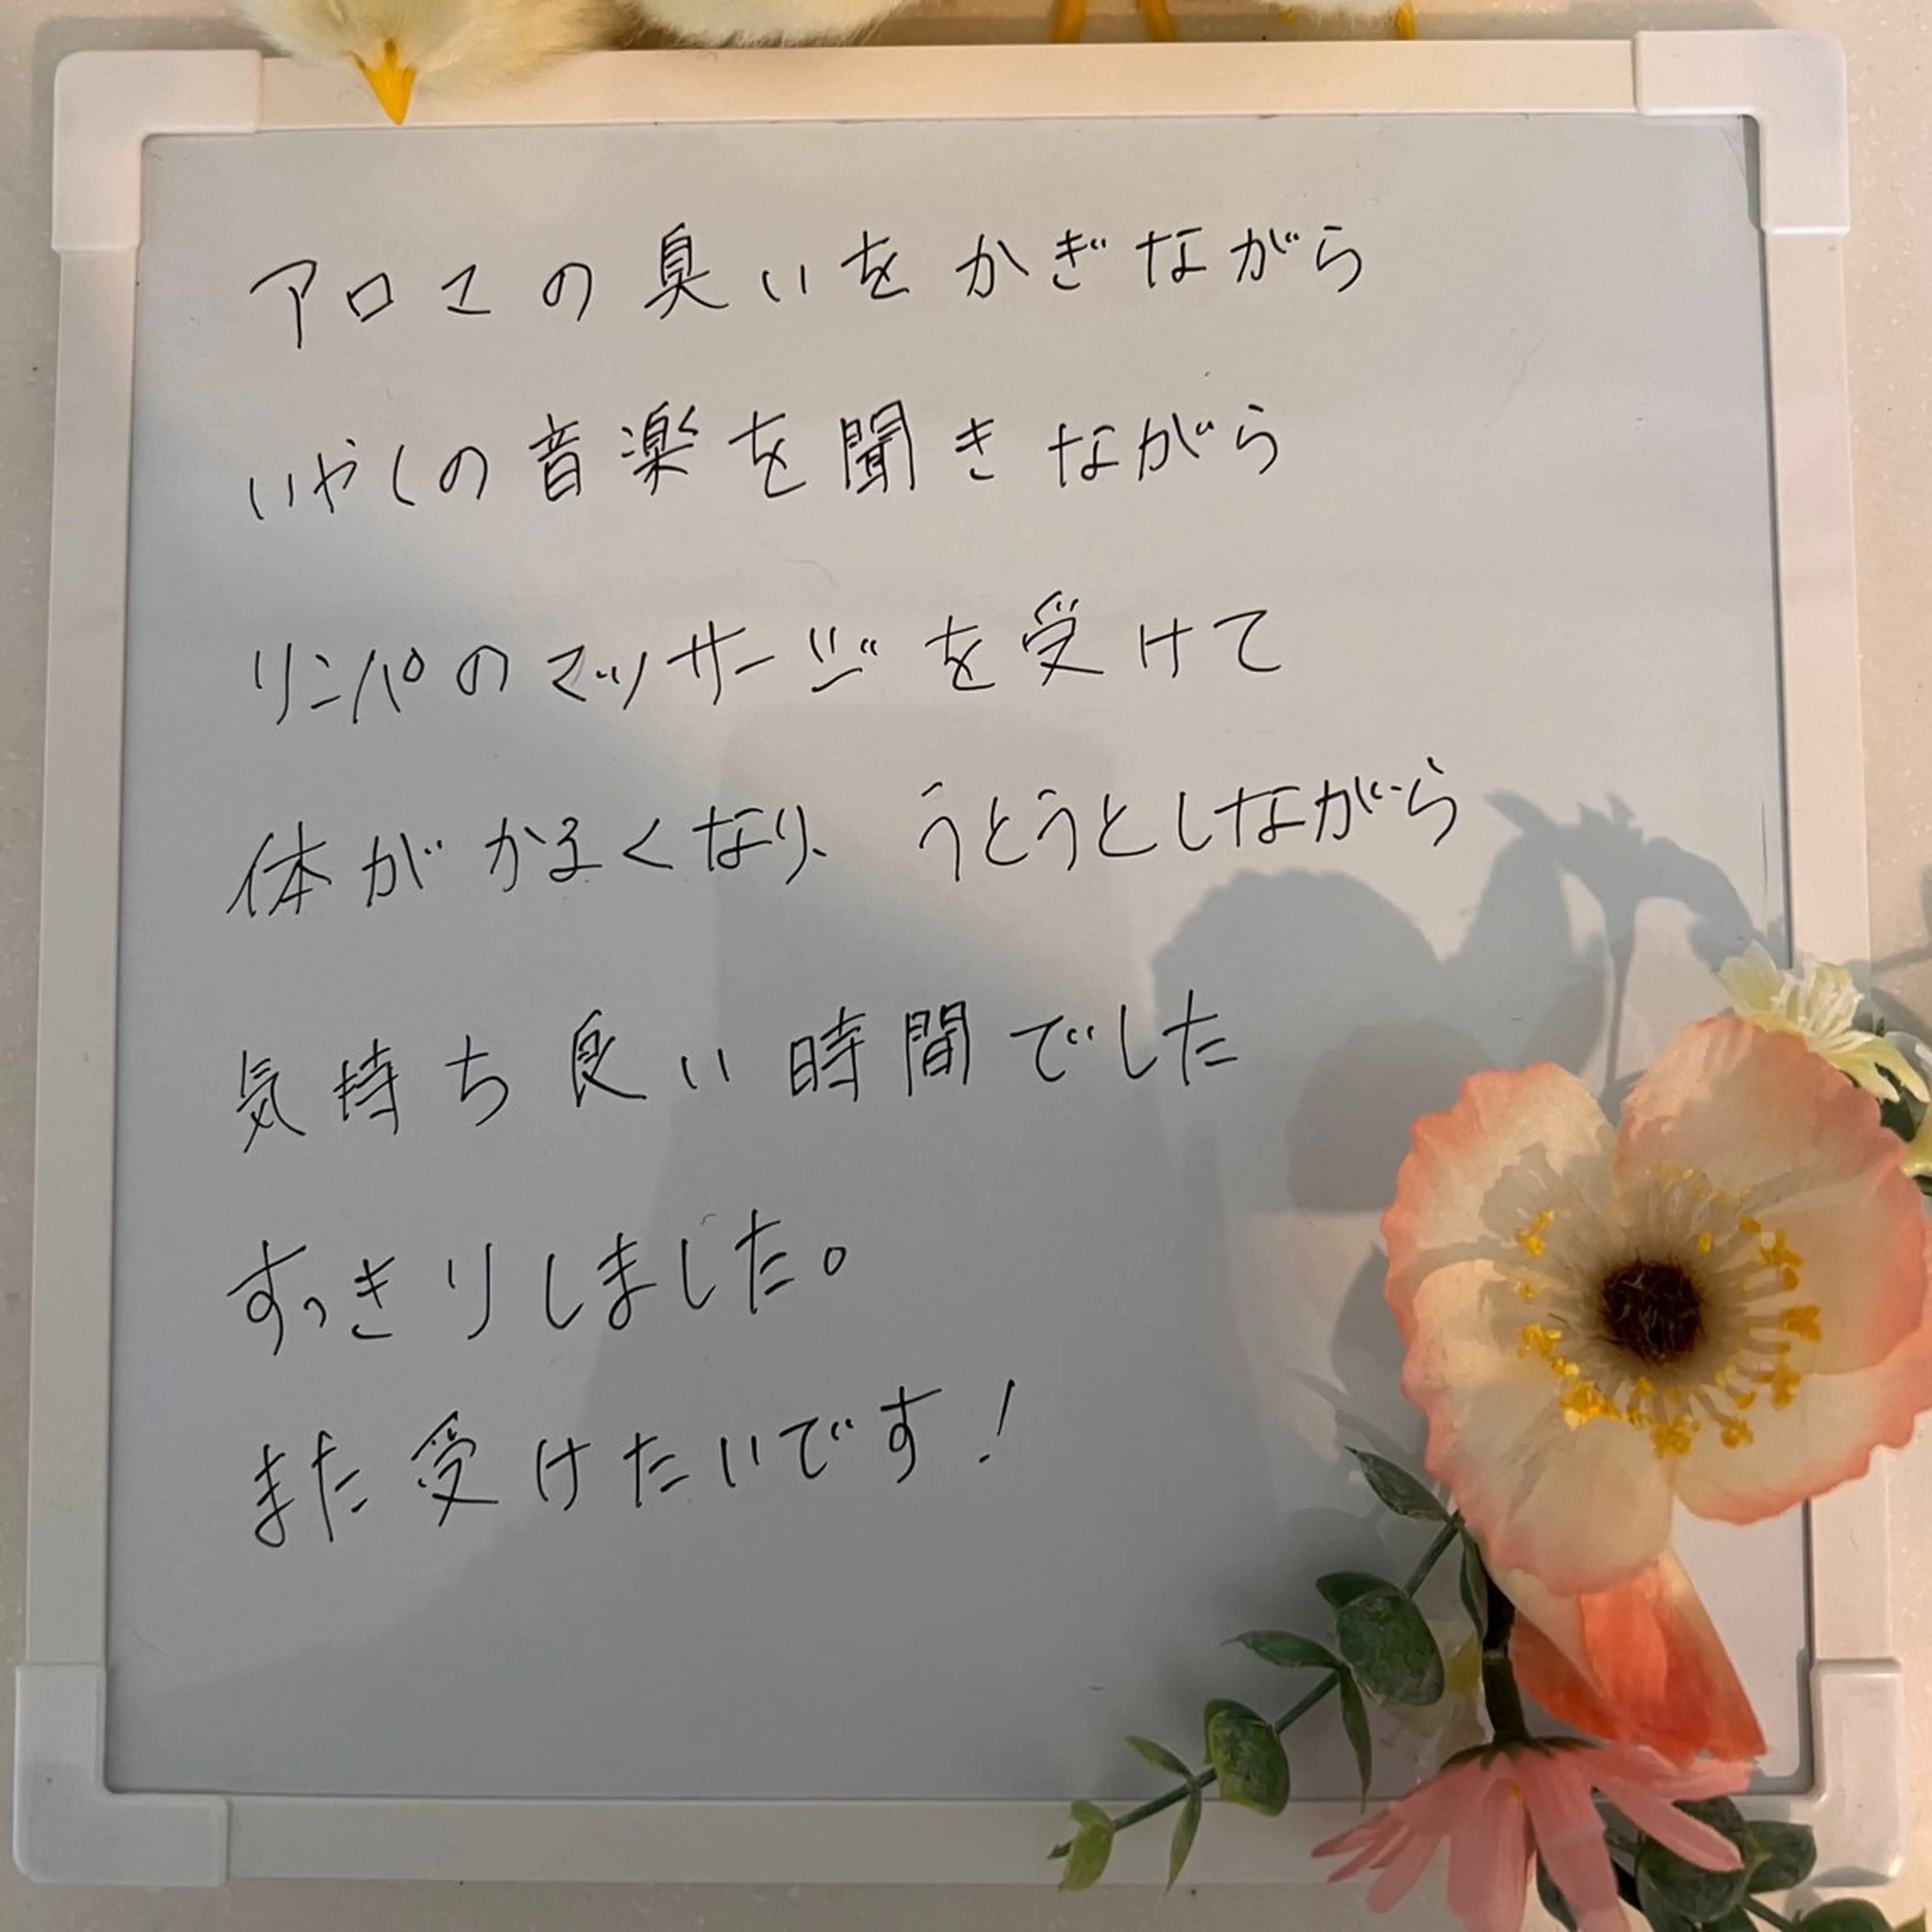 アロマの臭いをかぎながら
いやしの音楽を聞きながら
リンパのマッサージを受けて
体がかるくなり、うとうとしながら
気持ち良い時間でした
すっきりしました。
また受けたいです!